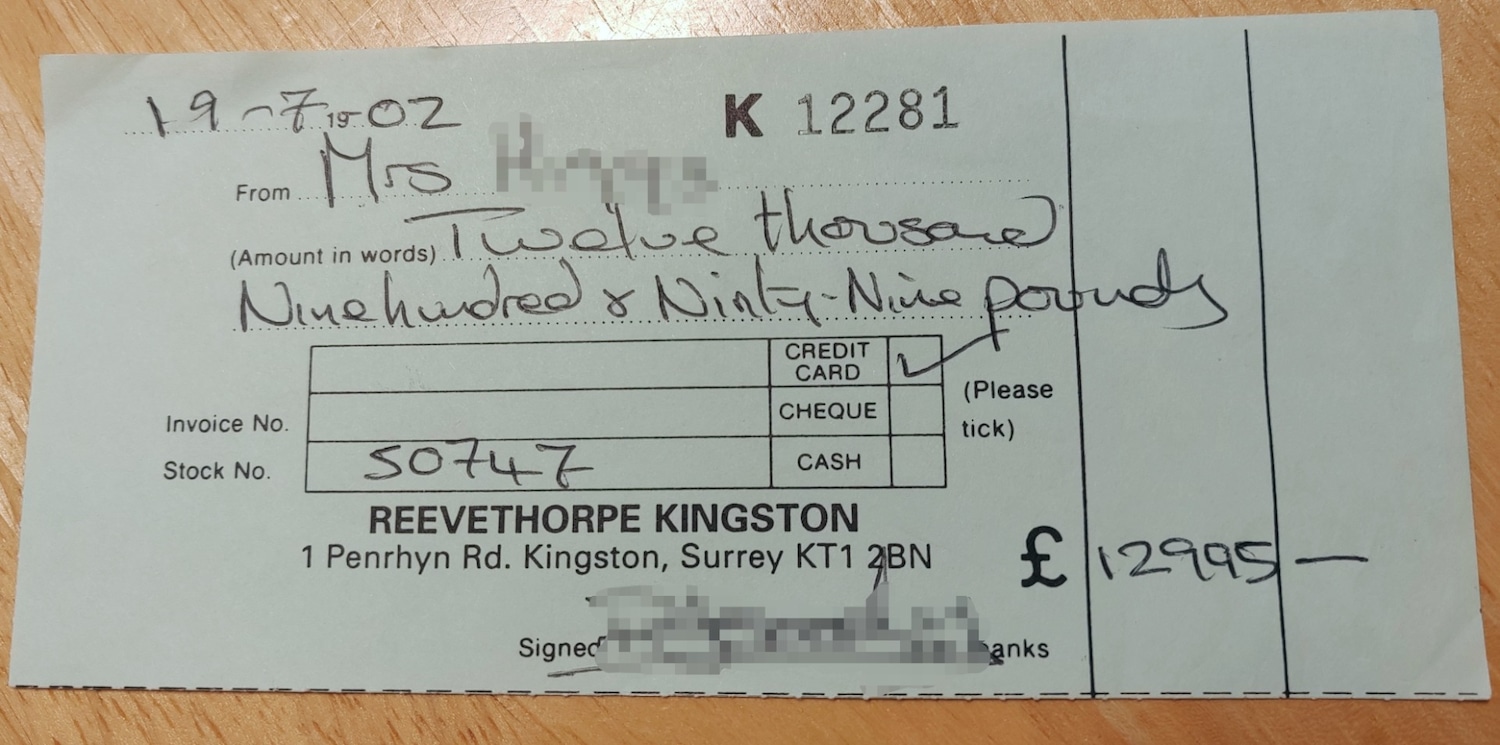 19-7 19 02 K 12281
From Mrs
(Amount in words) Twelve thousand
Nine hundred & Ninty-Nine pounds
CREDIT CARD
(Please tick)
Invoice No. CHEQUE
Stock No. 50747 CASH
REEVETHORPE KINGSTON
1 Penrhyn Rd. Kingston, Surrey KT1 2BN
£ 12995 —
Signed